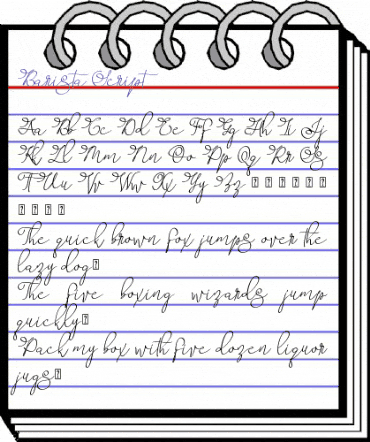 Barista Script
Aa Bb Cc Dd Ee Ff Gg Hh Ii Jj
Kk Ll Mm Nn Oo Pp Qq Rr Ss
Tt Uu Vv Ww Xx Yy Zz
The quick brown fox jumps over the
lazy dog
The five boxing wizards jump
quickly
Pack my box with five dozen liquor
jugs